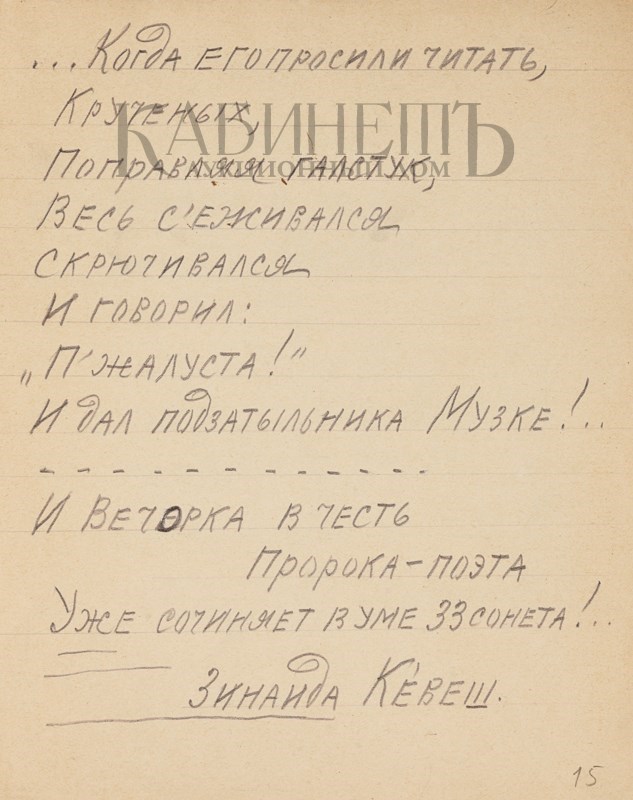 ...Когда его просили читать,
Крученых,
КАБИНЕТЪ
Поправляя галстук,
АУКЦИОННЫЙ ДОМ
Весь с'еживался
скрючивался
И говорил:
„П'жалуста!"
И дал подзатыльника Музке!..
- - - - - - - - - - - - -
И Вечорка в честь
Пророка-поэта
Уже сочиняет в уме 33 сонета!..
Зинаида Кевеш.
15